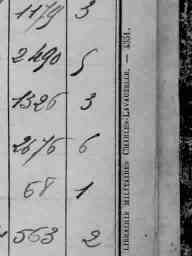 1179 3
2490 5
1326 3
2676 6
68 1
563 2
LIBRAIRIE MILITAIRE CHARLES-LAVAUZELLE. — 4351.